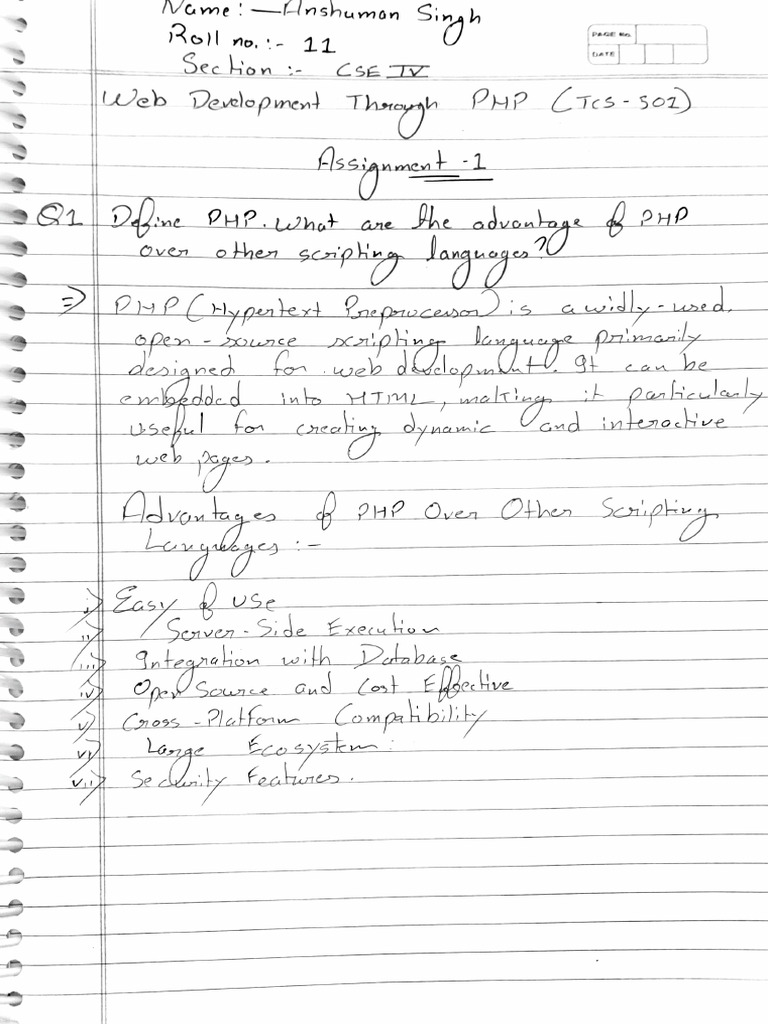 Name:- Anshuman Singh
Roll no.:- 11
PAGE No.
DATE
Section :- CSE IV
Web Development Through PHP (TCS-501)
Assignment -1
Q1 Define PHP. What are the advantage of PHP
over other scripting languages?
=> PHP (Hypertext Preprocessor) is a widly-used,
open-source scripting language primarily
designed for web development. It can be
embedded into HTML, making it particularly
useful for creating dynamic and interactive
web pages.
Advantages of PHP Over Other Scripting
Languages :-
i) Easy of use
ii) Server-Side Execution
iii) Integration with Database
iv) Open Source and Cost Effective
v) Cross-Platform Compatibility
vi) Large Ecosystem.
vii) Security Features.